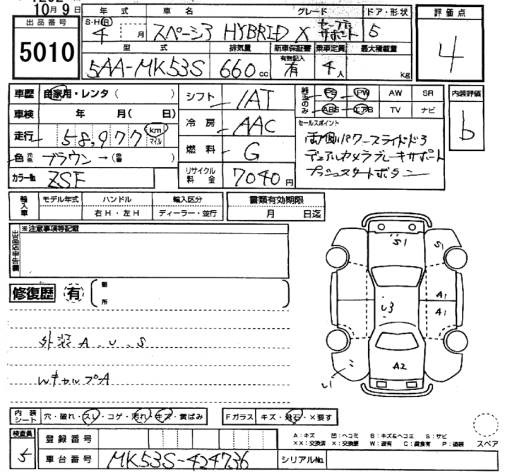 10月9日
出品番号
5010
年式 車名 グレード ドア・形状
S・H(R) 4 月 スペーシア HYBRID X セーフティサポート 5
型式 排気量 新車保証書 乗車定員 最大積載量
5AA-MK53S 660cc 有無記入 有 4人 kg
評価点
4
車歴 自家用・レンタ( )
車検 年 月( 日)
走行 58,977 km マイル
色 元色 ブラウン→(替色 )
カラーNo. ZSF
シフト IAT
冷房 AAC
燃料 G
リサイクル料金 7040円
PS PW AW SR
ABS エアB TV ナビ
セールスポイント
両側パワースライドドア
デュアルカメラブレーキサポート
プッシュスタートボタン
内装評価
b
輸入車 モデル年式 ハンドル 輸入区分 書類有効期限
右H・左H ディーラー・並行 月 日迄
※注意事項等記載
修復歴 有 箇所
外装 A、U、S
WキャップA
S1
S1
A1
A1
U3
A2
U1
内装シート 穴・破れ・スレ・コゲ・汚れ・キズ・黄ばみ Fガラス キズ・飛石・×要す
検査員
5
登録番号
車台番号 MK53S-424736
シリアルNo.
A:キズ 凹:ヘコミ B:キズ&ヘコミ S:サビ
XX:交換済 X:要交換 W:波有 C:腐食有 P:塗装
スペア